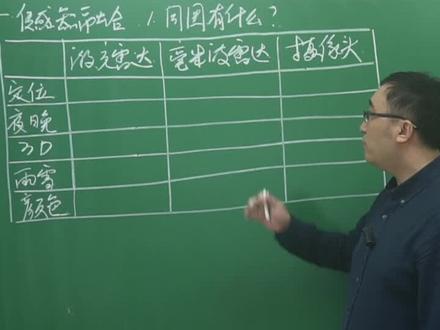 一.传感器融合 1.周围有什么?
激光雷达 毫米波雷达 摄像头
定位
夜晚
3D
雨雪
颜色